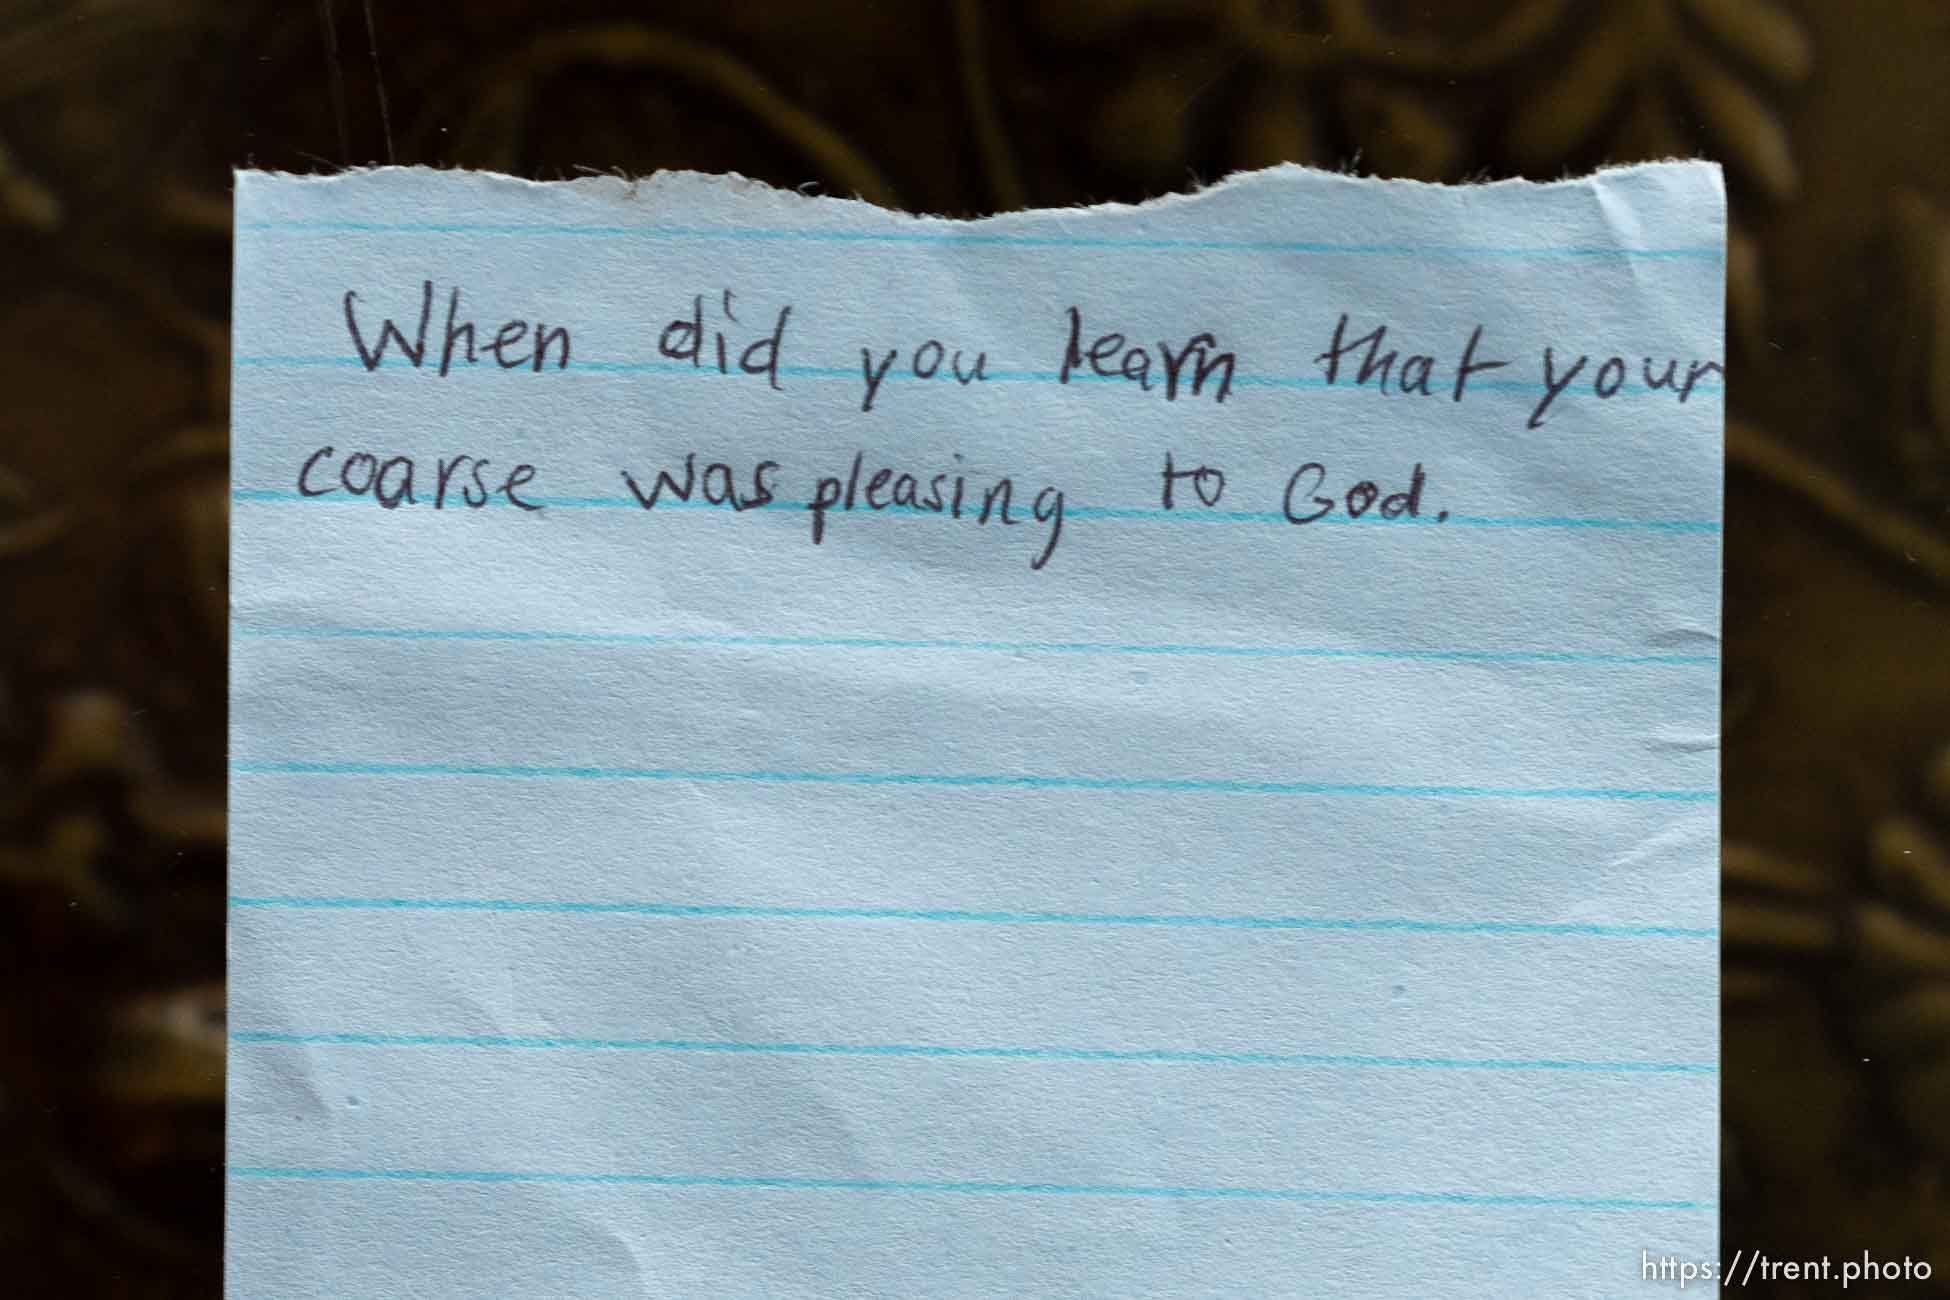 When did you learn that your
coarse was pleasing to God.
https://trent.photo